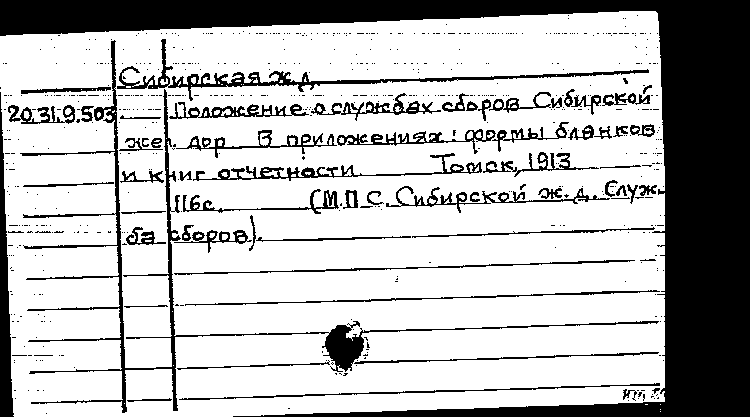 Сибирская ж.д.
20.31.9.503 Положение о службах сборов Сибирской
жел. дор. В приложениях: формы бланков
и книг отчетности Томск, 1913
116с. (М.П.С. Сибирской ж.д. Служ-
ба сборов).